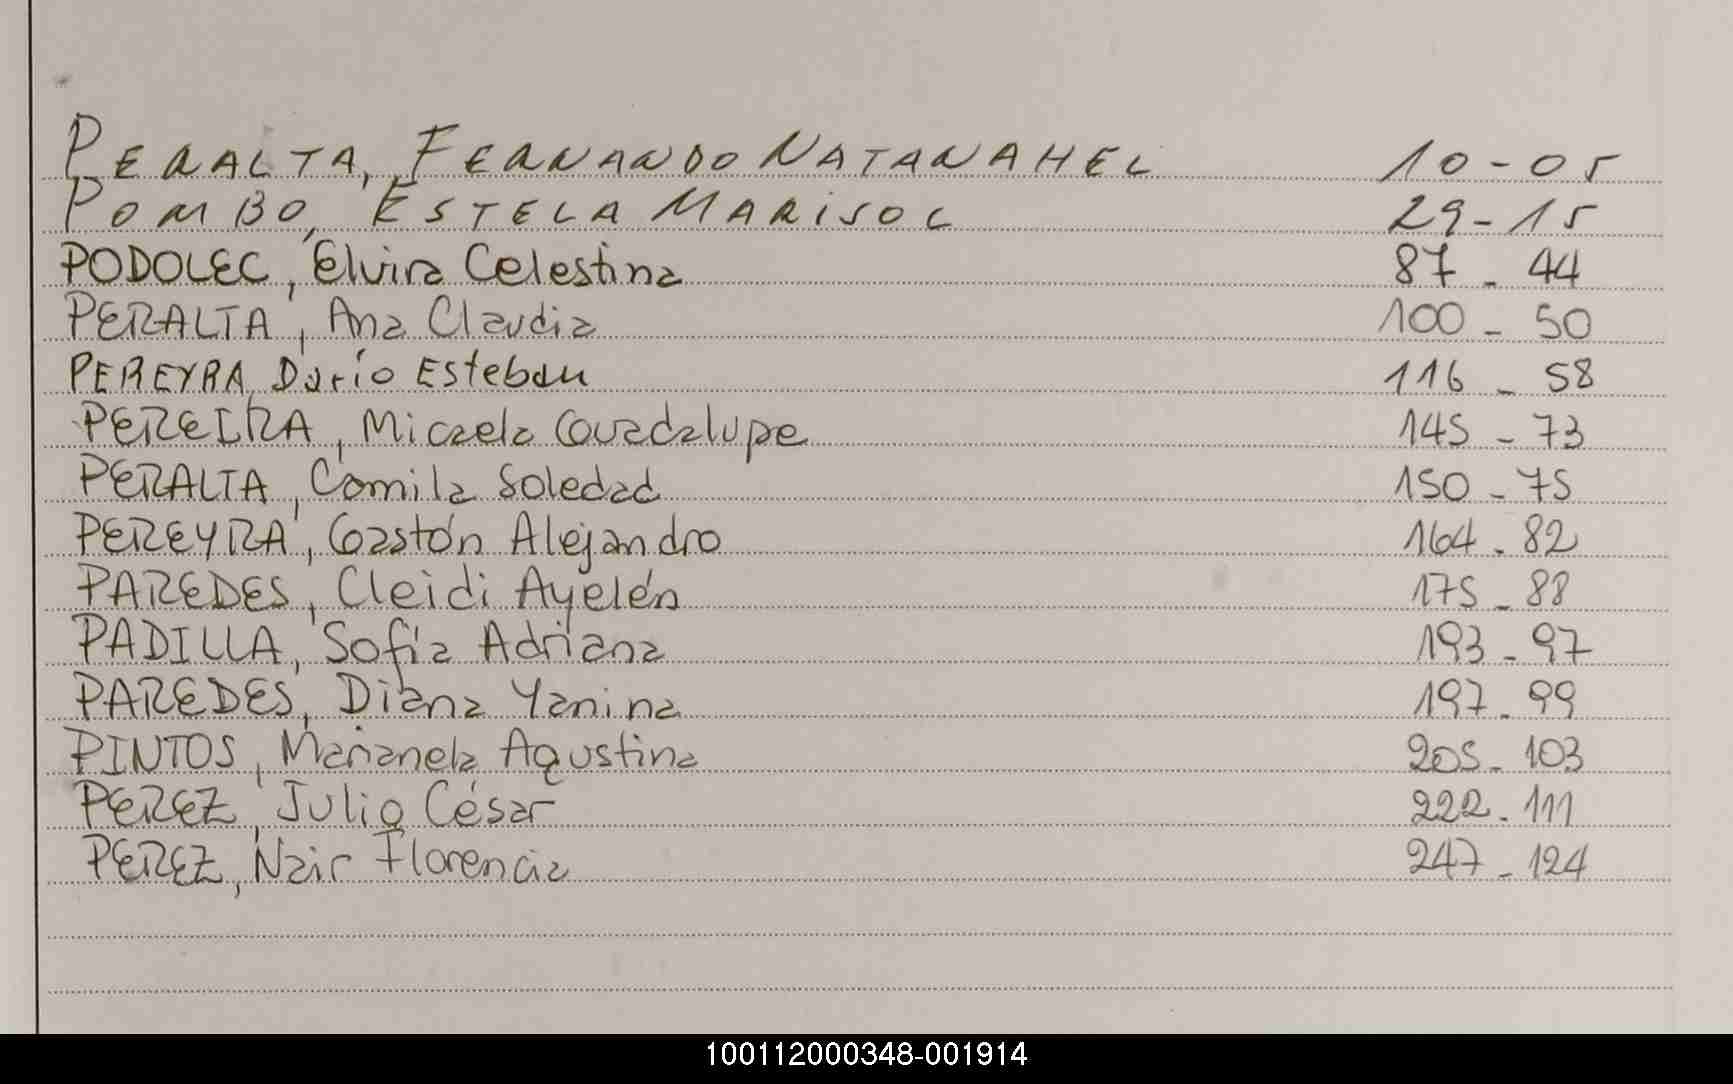 PERALTA, FERNANDO NATANAHEL 10-05
POMBO, ESTELA MARiSOL 29-15
PODOLEC, Elvira Celestina 87-44
PERALTA, Ana Claudia 100-50
PEREYRA, Darío Esteban 116-58
PEREIRA, Micaela Guadalupe 145-73
PERALTA, Camila Soledad 150-75
PEREYRA, Gastón Alejandro 164-82
PAREDES, Cleidi Ayelén 175-88
PADILLA, Sofía Adriana 193-97
PAREDES, Diana Yanina 197-99
PINTOS, Marianela Agustina 205-103
PEREZ, Julio César 222-111
PEREZ, Nair Florencia 247-124
100112000348-001914